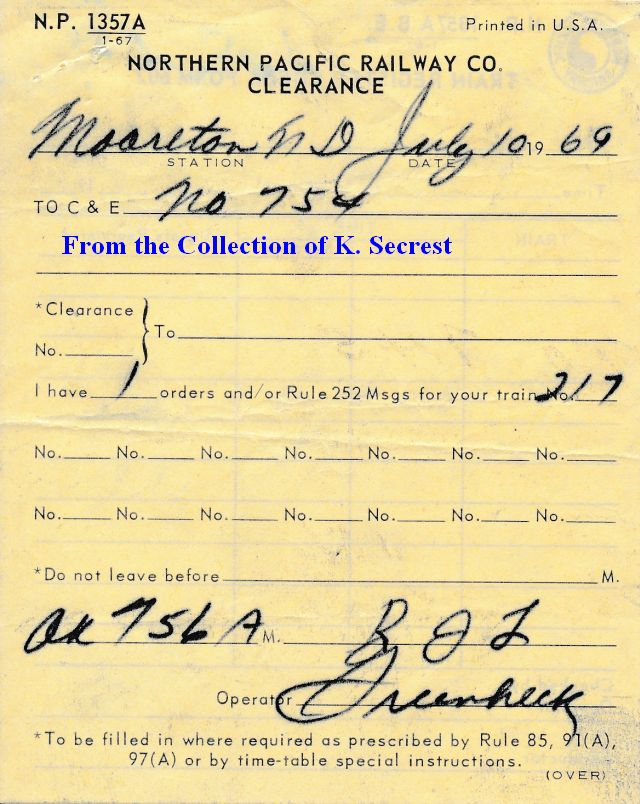 N.P. 1357A Printed in U.S.A.
1-67
NORTHERN PACIFIC RAILWAY CO.
CLEARANCE
Mooreton N D July 10 19 69
STATION DATE
TO C & E No 754
From the Collection of K. Secrest
*Clearance
No. } To
I have 1 orders and/or Rule 252 Msgs for your train No. 217
No. No. No. No. No. No. No.
No. No. No. No. No. No. No.
*Do not leave before M.
OK 756 A M. R J L
Operator Greenheck
*To be filled in where required as prescribed by Rule 85, 91(A),
97(A) or by time-table special instructions.
(OVER)